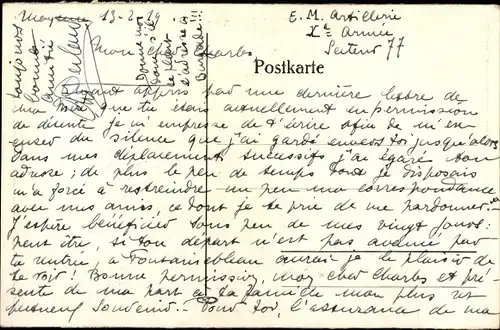 13-2-19
E. M. Artillerie
Xe Armée
Secteur 77
Mon cher Charles
Postkarte
Ayant appris par une dernière lettre de
ma mère que tu étais actuellement en permission
de détente je m'empresse de t'écrire afin de m'ex
cuser du silence que j'ai gardé envers toi jusqu'alors
Dans mes déplacements successifs j'ai égaré ton
adresse; de plus le peu de temps dont je disposais
m'a forcé à restreindre un peu ma correspondance
avec mes amis, ce dont je te prie de me pardonner.-
J'espère bénéficier sous peu de mes vingt jours:
peut être, si ton départ n'est pas avancé par
à Fontainebleau aurai-je le plaisir de
te voir! Bonne permission, mon cher Charles et pré
sente de ma part à ta famille mon plus res
pectueux souvenir.- Pour toi, l'assurance de ma
toujours
bonne
amitié
Donne moi
ton
adresse à